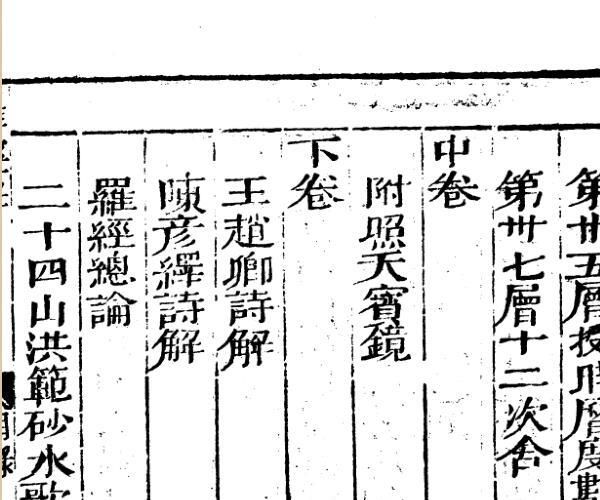 第卅五層授時層度數
第卅七層十二次舍
中卷
附照天寶鏡
下卷
王趙卿詩解
陳彥繹詩解
羅經總論
二十四山洪範砂水歌
目錄